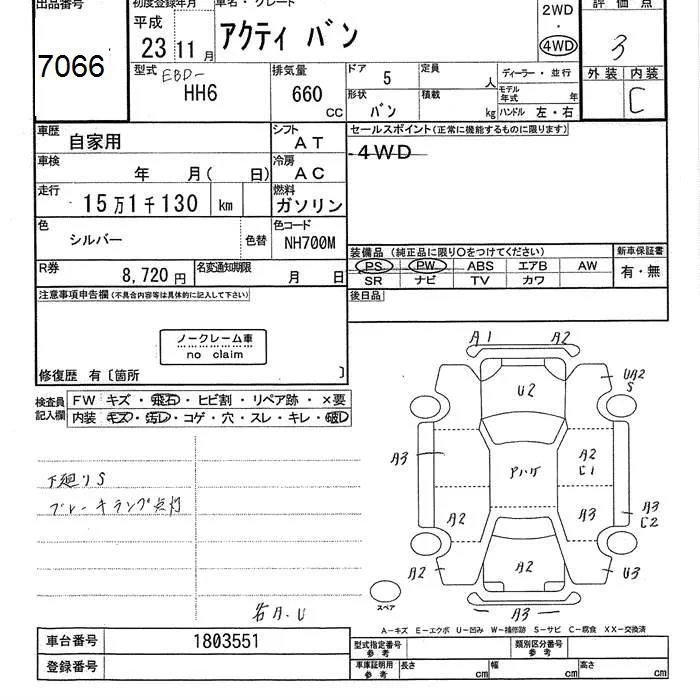 出品番号
初度登録年月 車名・グレード
評価点
7066
平成
23 11月
アクティ バン
2WD
・
4WD
3
型式 EBD-
HH6
排気量
660 CC
ドア 5
定員 人
ディーラー・並行
モデル年式 年
形状 バン
積載 kg
ハンドル 左・右
外装 内装
C
車歴 自家用
シフト AT
セールスポイント(正常に機能するものに限ります)
4WD
車検 年 月( 日)
冷房 AC
走行 15万1千130 km
燃料 ガソリン
色 シルバー 色替
色コード NH700M
装備品(純正品に限り○をつけてください)
新車保証書
PS PW ABS エアB AW
有・無
SR ナビ TV カワ
R券 8,720円
名変通知期限 月 日
後日品
注意事項申告欄(不具合内容等は具体的に記入して下さい)
ノークレーム車
no claim
修復歴 有〔箇所 〕
検査員記入欄
FW キズ・飛石・ヒビ割・リペア跡・×要
内装 キズ・汚レ・コゲ・穴・スレ・キレ・破レ
下廻りS
ブレーキランプ点灯
各A.U
A1 A2
U2
UA2
S
A3
アハゲ
A2
C1
A2
A3
A3
C2
A2
A2
U3
A3
スペア
A-キズ E-エクボ U-凹み W-補修跡 S-サビ C-腐食 XX-交換済
車台番号 1803551
型式指定番号 参考
類別区分番号 参考
登録番号
車庫証明用 参考
長さ cm 幅 cm 高さ cm